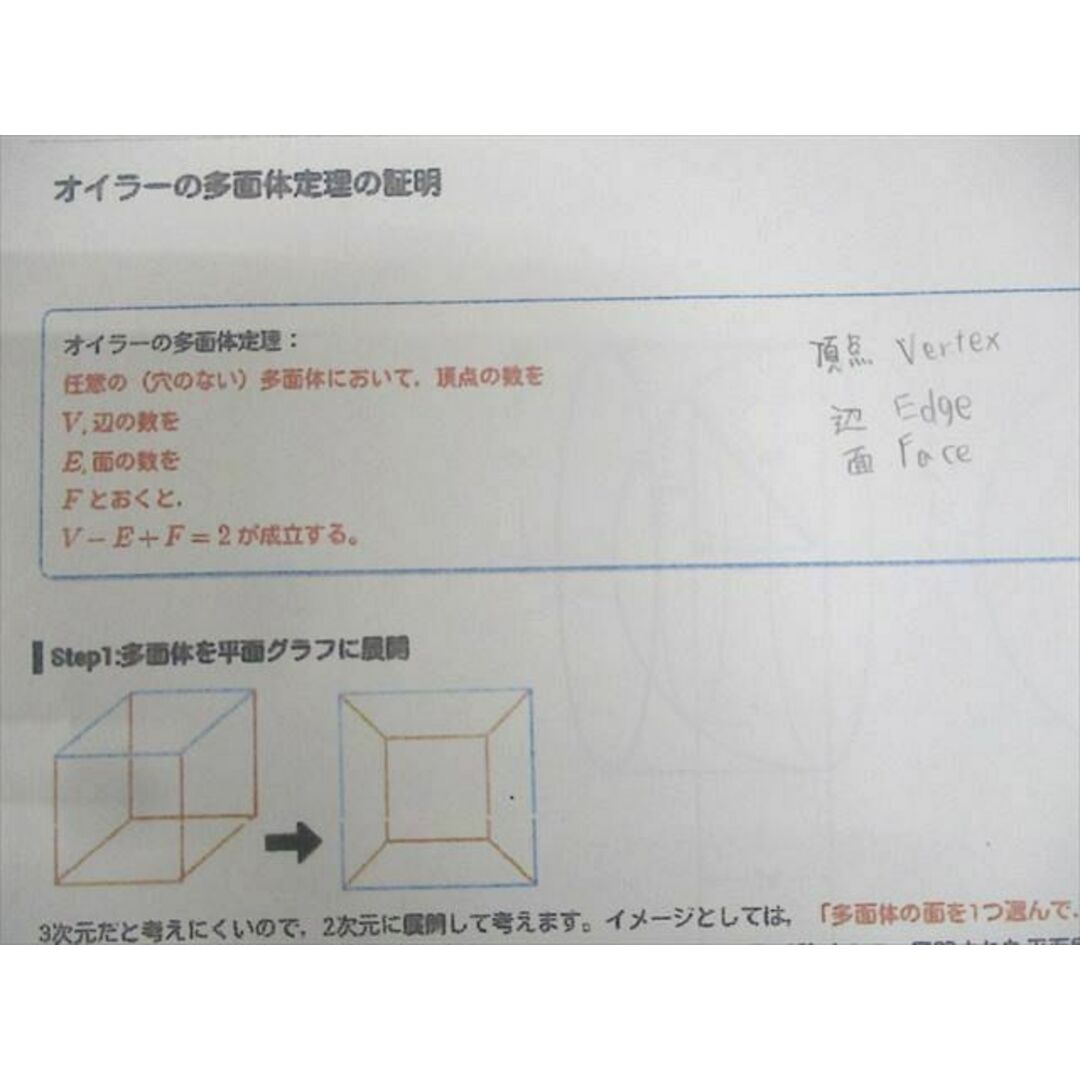 オイラーの多面体定理の証明
オイラーの多面体定理：
任意の（穴のない）多面体において，頂点の数を
V，辺の数を
E，面の数を
Fとおくと，
V－E＋F＝2が成立する。
頂点 Vertex
辺 Edge
面 Face
Step1:多面体を平面グラフに展開
3次元だと考えにくいので，2次元に展開して考えます。イメージとしては，「多面体の面を1つ選んで，